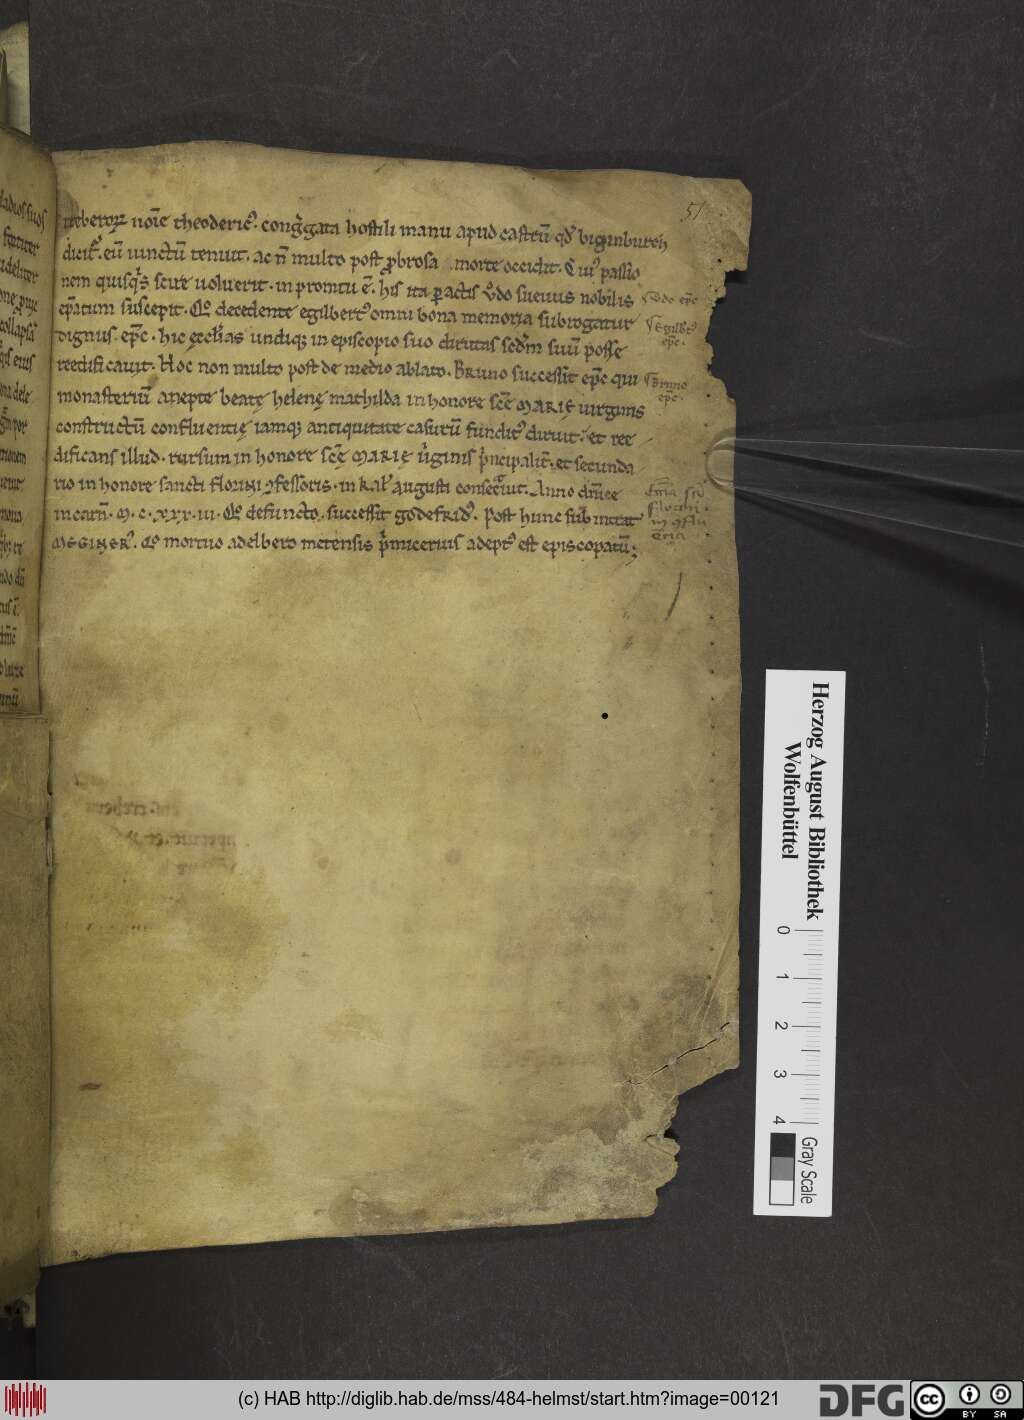 51
treberoꝝ noīe theoderic᷒. congᷓgata hostili manu apud castrū qd᷒ biginburch
dicit᷒. eū uinctū tenuit. ac n̄ multo post ꝓbrosa morte occidit. Cui᷒ passio
nem quisqͥs scire uoluerit. in promtu ē. his ita ꝑactis vͦdo sueuus nobilis
ep̄atum suscepit. Qͦ decedente egilbert᷒ omni bona memoria subrogatur
dignus. ep̄c. hic ęcclīas undiqꝫ in episcopio suo dirutas scd̄m suū posse
reedificauit. Hoc non multo post de medio ablato. Bruno successit ep̄c qui
monasteriū a nepte beatę helenę mathilda in honore scē MARIE uirginis
constructū confluentię iamqꝫ antiquitate casurū fundit᷒ diruit. et ree
dificans illud. rursum in honore scę MARIĘ uͥginis pͥncipalit̄. et secunda
rio in honore sancti florini ꝯfessoris. in kal᷒ augusti consecͣuit. Anno dn̄ice
incarn̄. M. c. xxx. iii. Qͦ defuncto. successit godefrid᷒. Post hunc subintrat
MEGINER᷒. Qͦ mortuo adelbero metensis pͥmicerius adept᷒ est episcopatū;
vͦdo ep̄c
Egilbt᷒
ep̄c.
Bruno
ep̄c.
florini
in ꝯflu
Herzog August Bibliothek
Wolfenbüttel
0 1 2 3 4
Gray Scale
(c) HAB http://diglib.hab.de/mss/484-helmst/start.htm?image=00121
DFG
cc BY SA